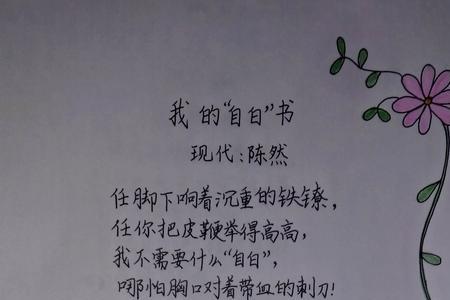 我的“自白”书
现代：陈然
任脚下响着沉重的铁镣，
任你把皮鞭举得高高，
我不需要什么“自白”，
哪怕胸口对着带血的刺刀！